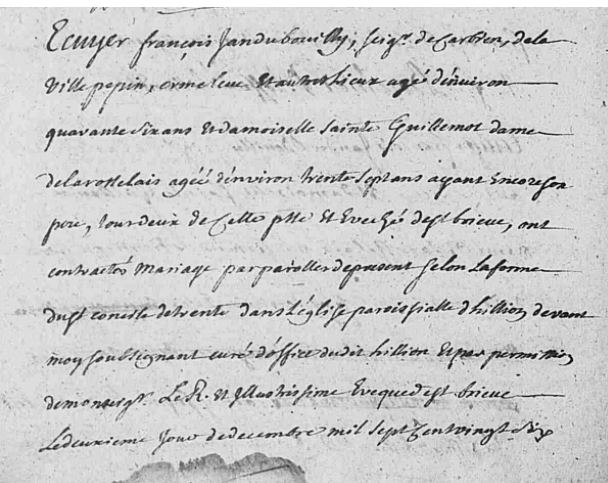 Ecuyer françois Jandubouilly, seigr. de Carbien, de la
Ville pepin, ormeleue Et autres Lieux agé d'environ
quarante Six ans Et damoiselle Sainte Guillemot dame
delarottelais ageé d'environ trente Sept ans ayant Encore son
pere, tous deux de Cette ptte Et Eveché de st brieuc, ont
contractés Mariage par paroller de present Selon La forme
du st concille de trente dans L'église paroissialle d'hillion devant
moy Soubsignant curé d'office dudit hillion Et par permission
de monseigr. Le R. Et Jllustrissime Eveque de st brieuc
Le deuxieme Jour de decembre mil Sept Cent vingt Six